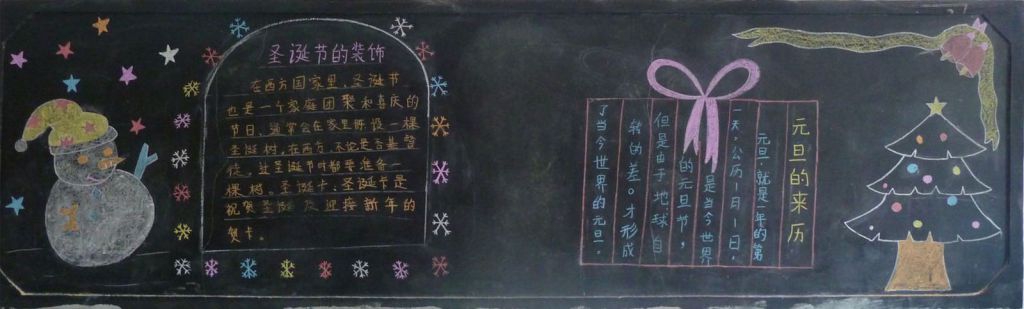 圣诞节的装饰
在西方国家里，圣诞节
也是一个家庭团聚和喜庆的
节日，通常会在家里陈设一棵
圣诞树。在西方，不论是否基督
徒，过圣诞节时都要准备一
棵树。圣诞卡：圣诞卡是
祝贺圣诞及迎接新年的
贺卡。
元旦的来历
元旦，就是一年的第
一天，公历一月一日，
是当今世界
的元旦节，
但是由于地球自
转的差。才形成
了当今世界的元旦。